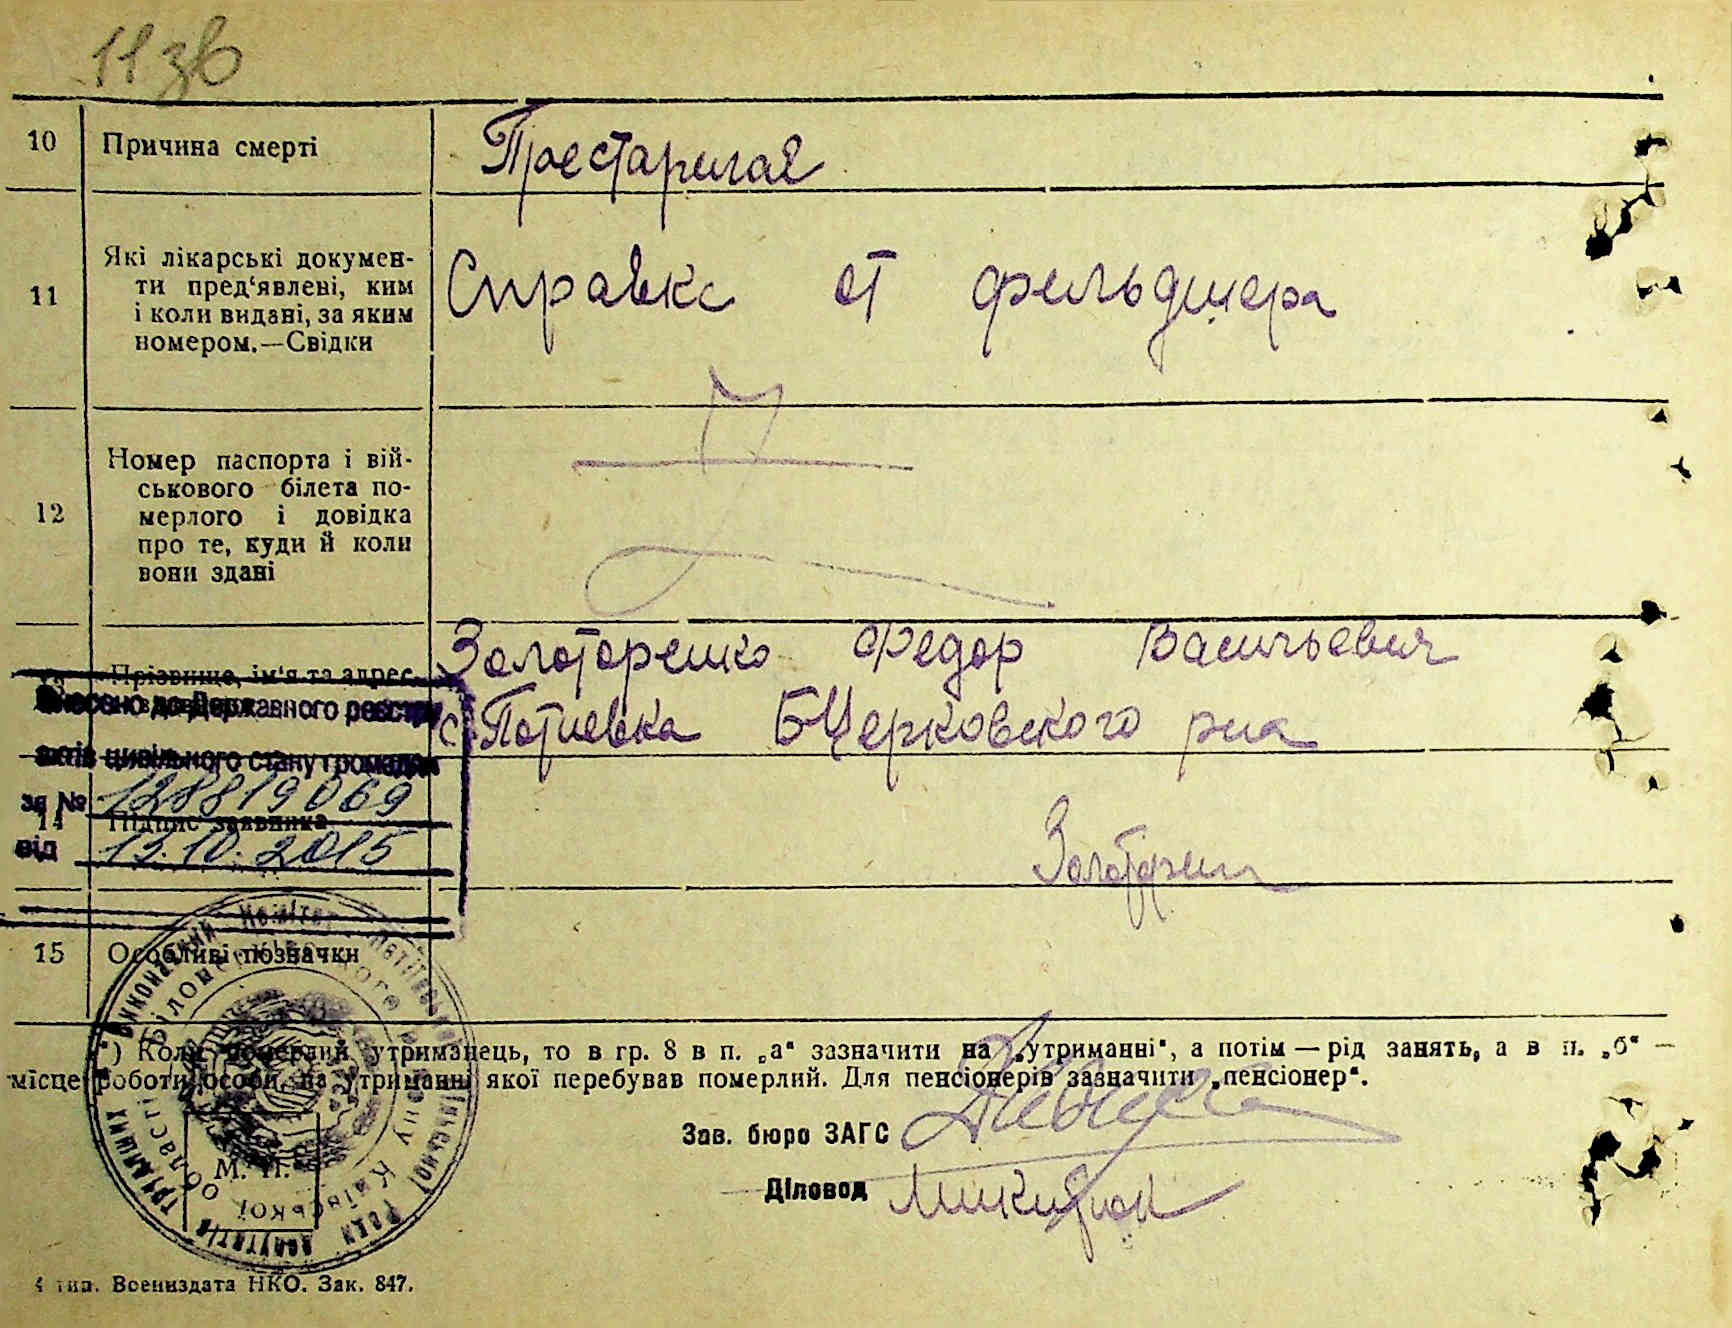 11зв
10 Причина смерті Престарилая
11 Які лікарські докумен-
ти пред‘явлені, ким
і коли видані, за яким
номером.—Свідки
Справка от фельдшера
12 Номер паспорта і вій-
ськового білета по-
мерлого і довідка
про те, куди й коли
вони здані
Прізвище, ім'я та адрес
Золотаренко Федор Васильевич
с. Потиевка БЦерковского р-на
Внесено до Державного реєстру
актів цивільного стану громадян
за № 128819069
14 Підпис заявника
від 13.10.2015
15 Особливі позначки
*) Коли померлий утриманець, то в гр. 8 в п. „а“ зазначити на „утриманні“, а потім — рід занять, а в п. „б“ —
місце роботи особи, на утриманні якої перебував померлий. Для пенсіонерів зазначити „пенсіонер“.
Зав. бюро ЗАГС
Діловод
М. П.
4 тип. Воениздата НКО. Зак. 847.